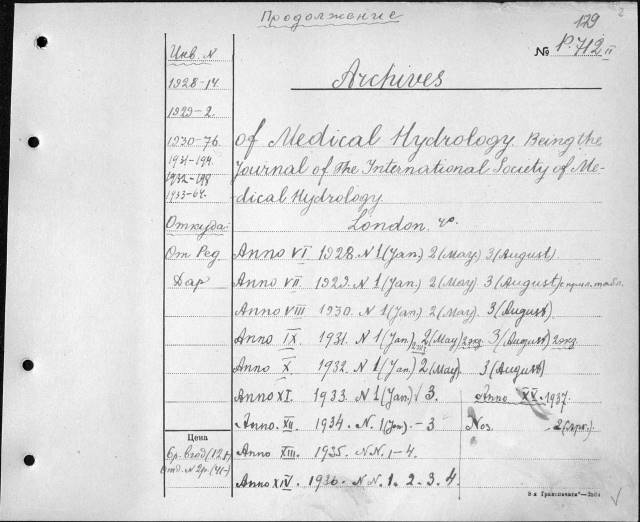 Продолжение
129
№ P. 712 II
Инв. N
1928-14.
1929-2.
1930-76.
1931-194.
1932-198
1933-64.
Откуда:
От Ред.
Дар
Archives
of Medical Hydrology. Being the
Journal of The International Society of Me-
dical Hydrology
London.
Anno VI 1928. N 1 (Jan.) 2 (May) 3 (August).
Anno VII 1929. N 1 (Jan.) 2 (May). 3 (August)
Anno VIII 1930. N 1 (Jan.) 2 (May). 3 (August).
Anno IX. 1931. N 1 (Jan.) 2 (May) 2 экз. 3 (August) 2 экз.
Anno X. 1932. N 1 (Jan.) 2 (May). 3 (August)
Anno XI. 1933. N 1 (Jan.) 3. Anno XV. 1937.
Anno. XII 1934. N. 1 (Jan) - 3 Nos. - 2 (Apr.)
Anno XIII. 1935. N.N. 1-4.
Anno XIV. 1936. N.N. 1. 2. 3. 4.
Цена